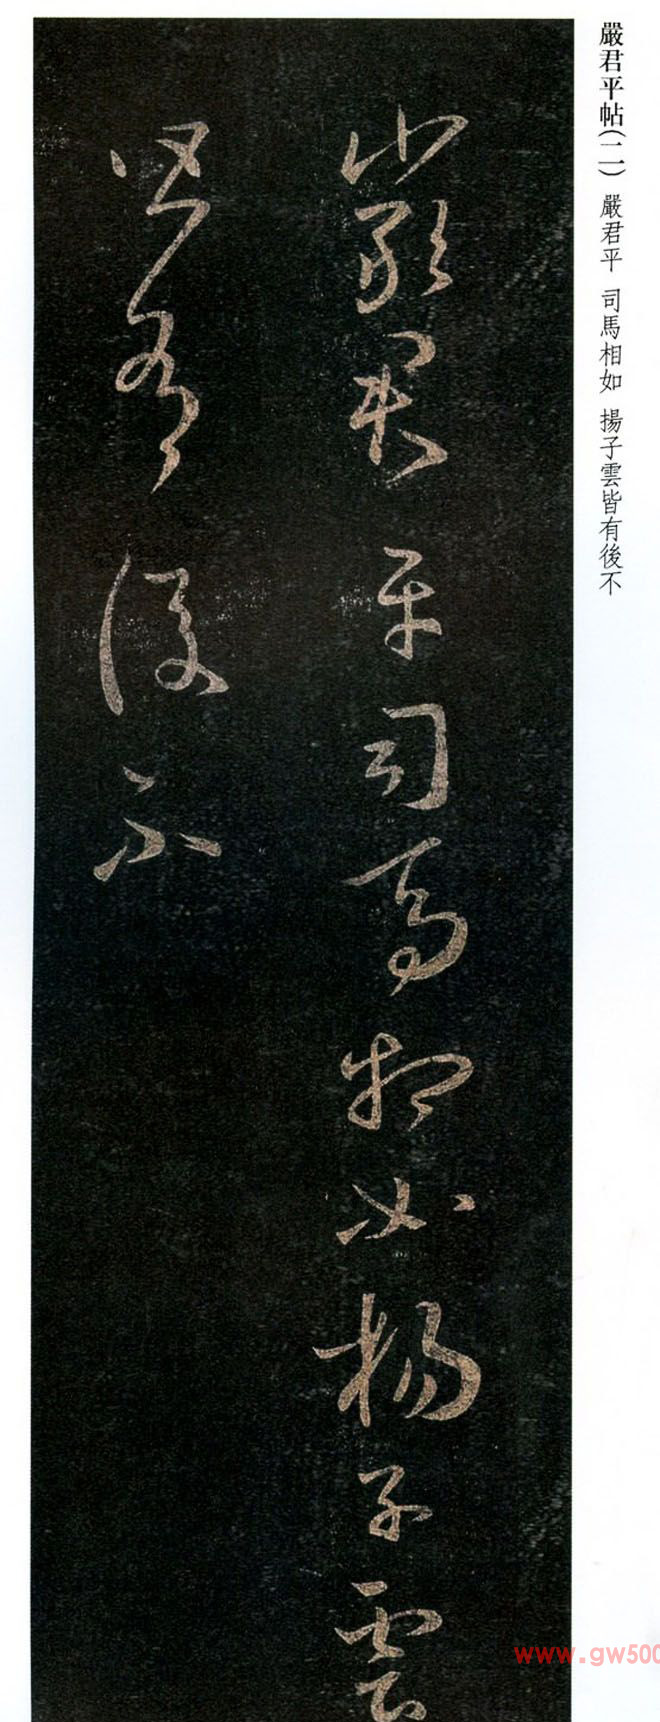 嚴君平帖(二) 嚴君平 司馬相如 揚子雲皆有後不
嚴君平司馬相如楊子雲
皆有後不
www.gw500